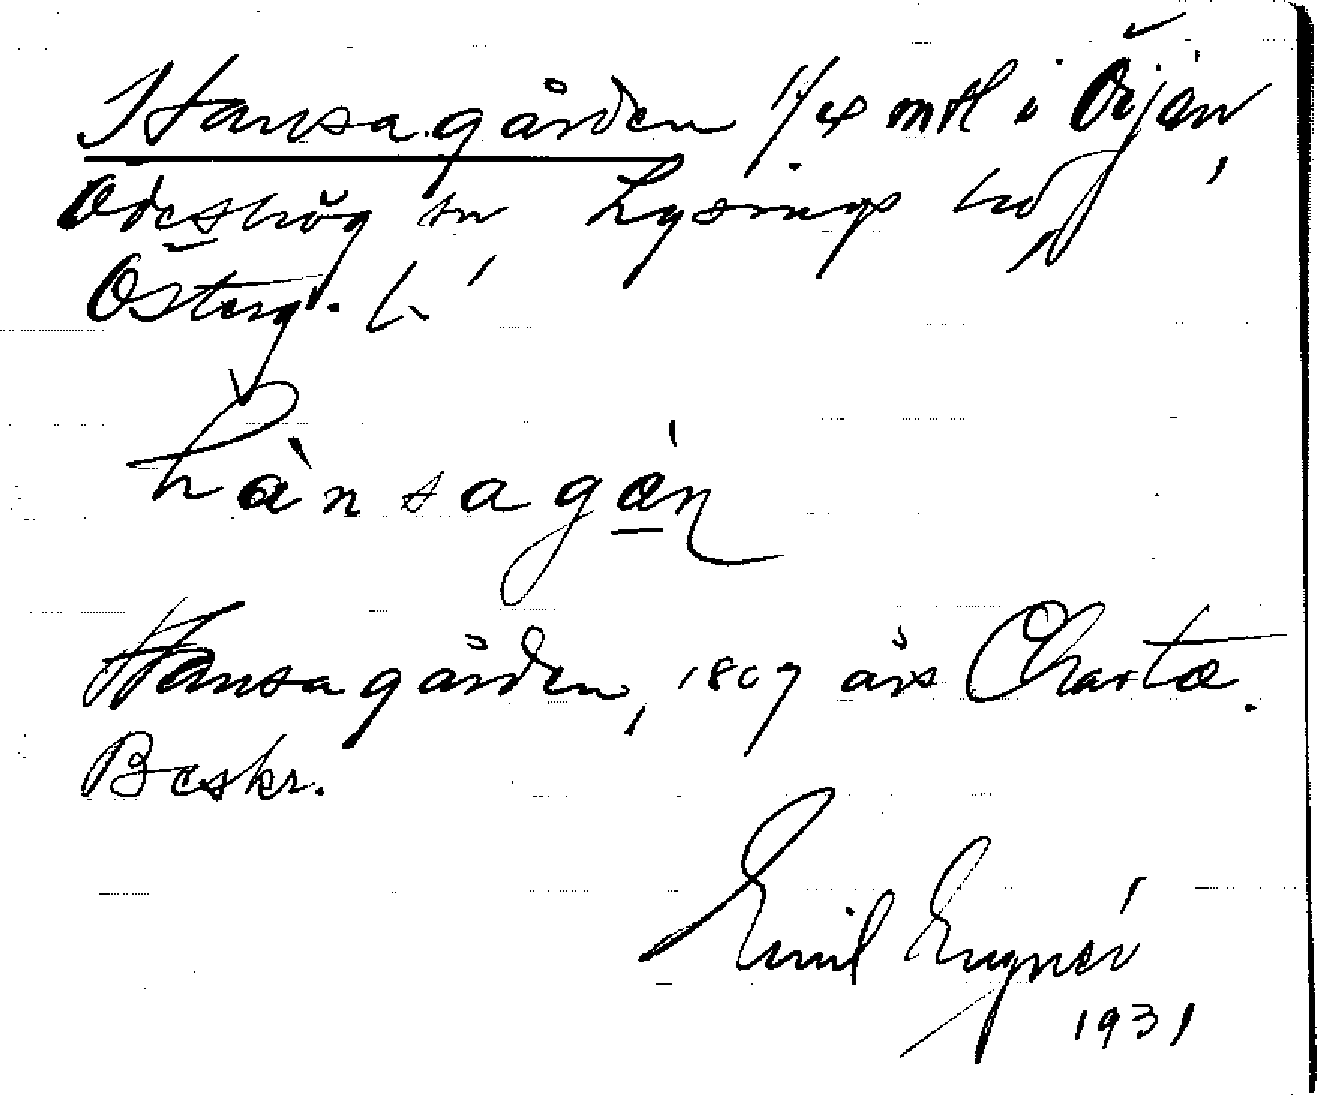 Hansagården 1/4 mtl i Öijen,
Ödeshög sn Lysings hd
Österg. l.
hànsagán
Hansagården, 1807 års Charta.
Beskr.
Emil
1931